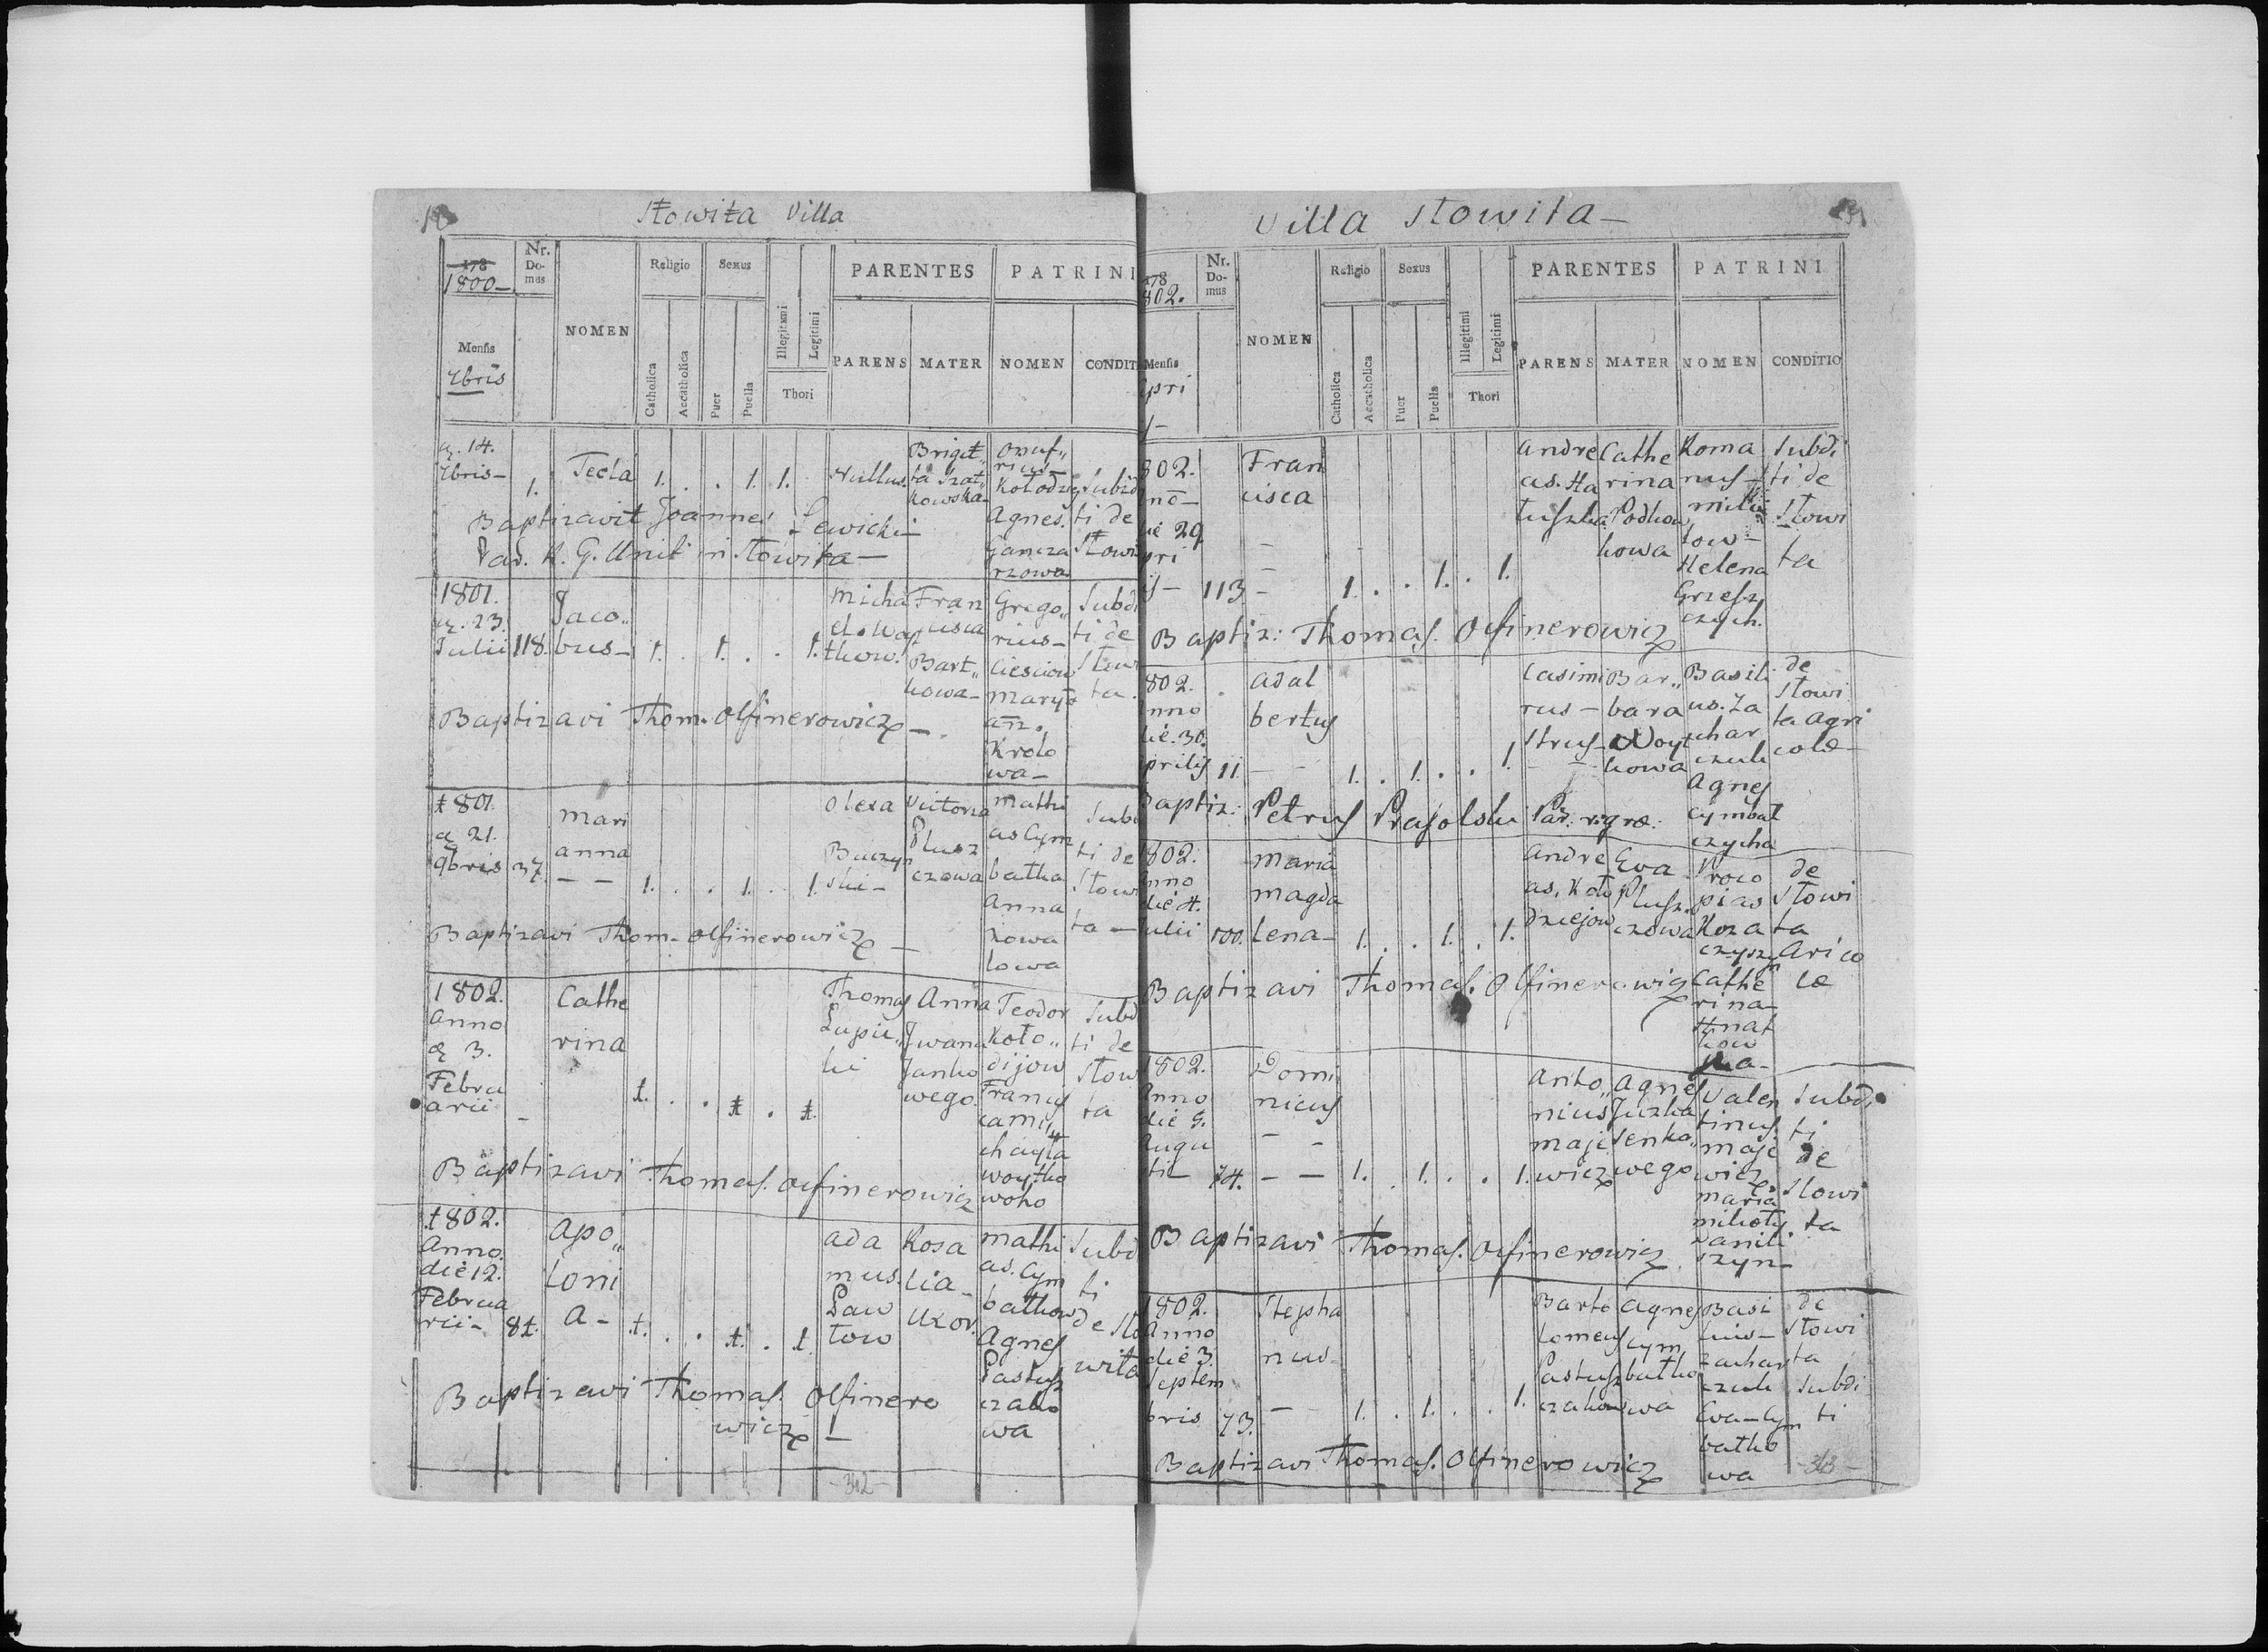 Słowita Villa
178
1800 –
Nr. Domus
NOMEN
Religio
Sexus
PARENTES
PATRINI
Mensis
Xbris
Catholica
Accatholica
Puer
Puella
Illegitimi
Legitimi
Thori
PARENS
MATER
NOMEN
CONDIT
14. Xbris –
1.
Tecla
1. . . 1. 1.
Nullus.
Brigit„
ta Szat„
kowska –
Onuf„
rius
Kołodziej
Agnes.
Gancza
rzowa
Subd
ti de
Stowi
Baptizavit Joannes Lewicki –
Par. R. G. Unit in Stowita –
1801.
23.
Julii
118.
Jaco„
bus –
1. . 1. . . 1.
Micha
el. Woy
tkow.
Fran
cisca
Bart„
kowa –
Grego„
rius –
Cieściow
Mary
an.
Krolo
wa –
Subdi
ti de
Stowi
ta.
Baptizavi Thom. Olfinerowicz –
1801.
21.
9bris
37.
Mari
anna
– –
1. . . 1. . 1.
Olexa
Buczyn
ski –
Victoria
Plusz
czowa
Mathi
as Cym
batka
Anna
Kowa
lowa
Subd
ti de
Stowi
ta –
Baptizavi Thom. Olfinerowicz –
1802.
Anno
3.
Febru
arii –
Cathe
rina
1. . . 1. . 1.
Thomas
Łupic„
ki
Anna
Iwana
Janko
wego.
Teodor
Koło„
dijow
Francis
ca Mi„
chayła
Woytko
woho
Subd
ti de
Stow
ta
Baptizavi Thomas. Olfinerowicz
1802.
Anno.
die 12.
Februa
rii –
81.
Apo„
loni
a –
1. . . 1. . 1.
Ada
mus.
Paw
łow
Rosa
lia –
Uxor.
Mathi
as. Cym
batkow
Agnes
Pastusz
czako
wa
Subd
ti
de Sto
wita
Baptizavi Thomas. Olfinero
wicz –
- 312 -
Villa Stowita –
178
802.
Nr. Domus
NOMEN
Religio
Sexus
PARENTES
PATRINI
Mensis
Apri
l –
Catholica
Accatholica
Puer
Puella
Illegitimi
Legitimi
Thori
PARENS
MATER
NOMEN
CONDITIO
802.
nō –
die 29
pri
lis –
113 –
Fran
cisca
1. . . 1. . 1.
Andre
as. Ha
tuszka
Cathe
rina
Podkow
kowa
Roma
nus –
Helena
Grzesz
czych.
Subdi
ti de
Stowi
ta
Baptiz: Thomas. Olfinerowicz
802.
nno
die. 30.
prilis
11
Adal
bertus
1. . 1. . . 1.
Casimi
rus –
Strus –
Bar„
bara
Woyt
kowa
Basili
us. Za
char
czuk
Agnes
Cymbał
czycha
de
Stowi
ta Agri
colæ –
Baptiz: Petrus
1802.
nno
die 4.
Julii
100.
Maria
Magda
lena –
1. . . 1. . 1.
Andre
as. Koło
dziejow
Eva
Plusz
czowa
Proco
pias
Koza
czyszyn
Cathe
rina –
Hnat
kow
ska –
de
Stowi
ta
Arico
læ
Baptizavi Thomas. Olfinerowicz
1802.
Anno
die 9.
Augu
sti –
74. – –
Domi
nicus
– –
1. . 1. . . 1.
Anto„
nius
Maje
wicz
Agnes
Juzka
Senko„
wego
Valen
tinus
Maje
wicz.
Maria
Mikoły
Danili
szyn –
Subdi
ti
de
Stowi
ta
Baptizavi Thomas. Olfinerowicz
1802.
Anno
die 3.
Septem
bris
73. –
Stepha
nus –
1. . 1. . . 1.
Barto
lomeus
Pastusz
czakow
Agnes
Cym
batko
wa
Basi
lius –
Zachar
czuk
Eva – Cym
batko
wa
de
Stowi
ta
Subdi
ti
Baptizavi Thomas. Olfinerowicz
- 313 -